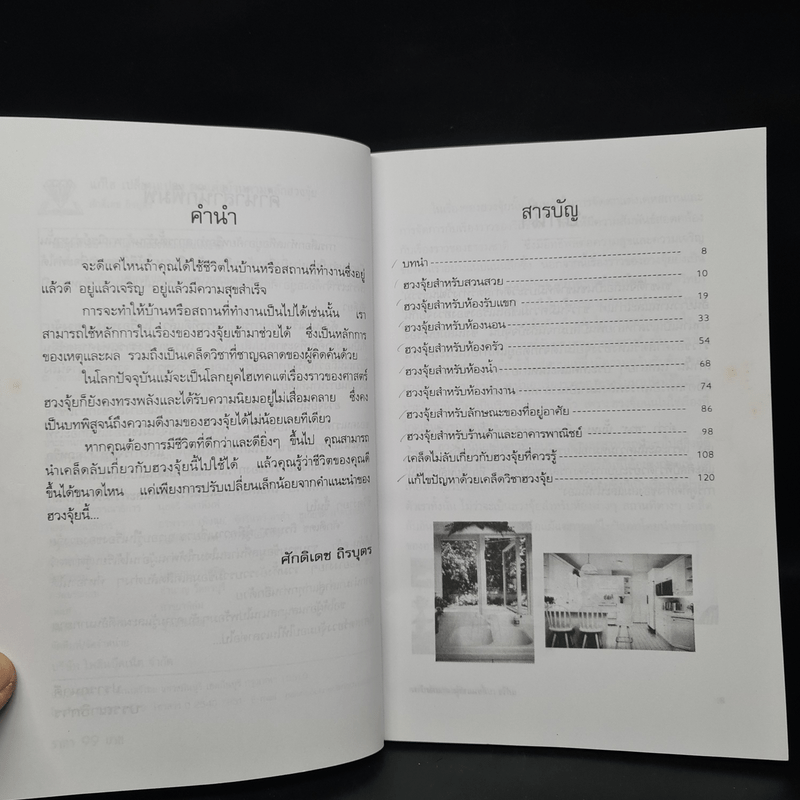 คำนำ
จะดีแค่ไหนถ้าคุณได้ใช้ชีวิตในบ้านหรือสถานที่ทำงานซึ่งอยู่
แล้วดี อยู่แล้วเจริญ อยู่แล้วมีความสุขสำเร็จ
การจะทำให้บ้านหรือสถานที่ทำงานเป็นไปได้เช่นนั้น เรา
สามารถใช้หลักการในเรื่องของฮวงจุ้ยเข้ามาช่วยได้ ซึ่งเป็นหลักการ
ของเหตุและผล รวมถึงเป็นเคล็ดวิชาที่ชาญฉลาดของผู้คิดค้นด้วย
ในโลกปัจจุบันแม้จะเป็นโลกยุคไฮเทคแต่เรื่องราวของศาสตร์
ฮวงจุ้ยก็ยังคงทรงพลังและได้รับความนิยมอยู่ไม่เสื่อมคลาย ซึ่งคง
เป็นบทพิสูจน์ถึงความดีงามของฮวงจุ้ยได้ไม่น้อยเลยทีเดียว
หากคุณต้องการมีชีวิตที่ดีกว่าและดียิ่งๆ ขึ้นไป คุณสามารถ
นำเคล็ดลับเกี่ยวกับฮวงจุ้ยนี้ไปใช้ได้ แล้วคุณรู้ว่าชีวิตของคุณดี
ขึ้นได้ขนาดไหน แค่เพียงการปรับเปลี่ยนเล็กน้อยจากคำแนะนำของ
ฮวงจุ้ยนี้...
ศักดิเดช ถิรบุตร
สารบัญ
บทนำ 8
ฮวงจุ้ยสำหรับสวนสวย 10
ฮวงจุ้ยสำหรับห้องรับแขก 19
ฮวงจุ้ยสำหรับห้องนอน 33
ฮวงจุ้ยสำหรับห้องครัว 54
ฮวงจุ้ยสำหรับห้องน้ำ 68
ฮวงจุ้ยสำหรับห้องทำงาน 74
ฮวงจุ้ยสำหรับลักษณะของที่อยู่อาศัย 86
ฮวงจุ้ยสำหรับร้านค้าและอาคารพาณิชย์ 98
เคล็ดไม่ลับเกี่ยวกับฮวงจุ้ยที่ควรรู้ 108
แก้ไขปัญหาด้วยเคล็ดวิชาฮวงจุ้ย 120